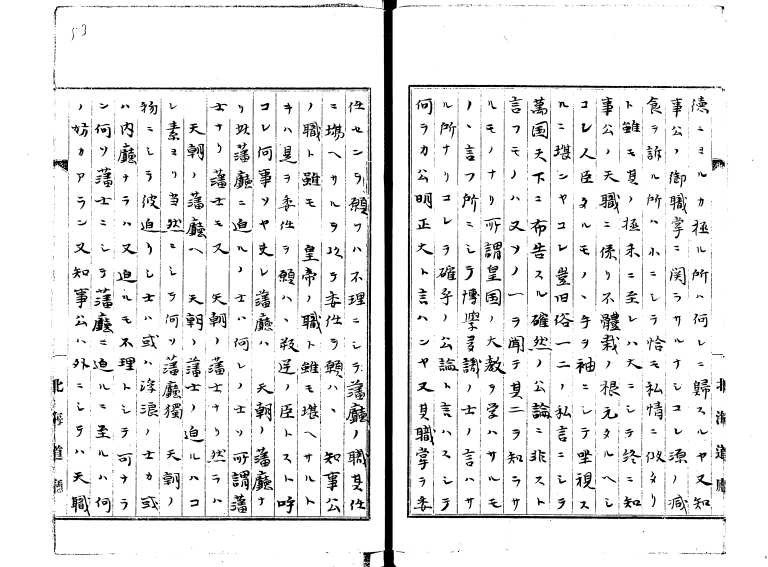 徳ニヨルカ極ル所ハ何レニ歸スルヤ又知
事公ノ御職掌ニ関ラサルナシコレ源ノ減
食ヲ訴ル所ハ小ニシテ恰モ私情ニ似タリ
ト雖モ其ノ極末ニ至レハ大ニシテ終ニ知
事公ノ天職ニ係リ不體裁ノ根元タルヘシ
コレ人臣タルモノヽ手ヲ袖ニシテ坐視ス
ルニ堪ンヤコレ豈旧俗一二ノ私言ニシテ
萬国天下ニ布告スル確然ノ公論ニ非スト
言フモノハ又ソノ一ヲ聞テ其二ヲ知ラサ
ルモノナリ所謂皇国ノ大教ヲ学ハサルモ
ノヽ言フ所ニシテ博學多識ノ士ノ言ハサ
ル所ナリコレヲ確乎ノ公論ト言ハスシテ
何ヲカ公明正大ト言ハンヤ又其職掌ヲ委
任センヲ願フハ不理ニシテ藩廳ノ職其任
ニ堪ヘサルヲ以テ委任ヲ願ハヽ知事公
ノ職ト雖モ 皇帝ノ職ト雖モ堪ヘサルト
キハ是ヲ委任ヲ願ハヽ叛逆ノ臣トスト呼
コレ何事ソヤ夫レ藩廳ハ 天朝ノ藩廳ナ
リ此藩廳ニ迫ルノ士ハ何レノ士ソ所謂藩
士ナリ藩士モ又 天朝ノ藩士ナリ然ラハ
天朝ノ藩廳ヘ 天朝ノ藩士ノ迫ルハコ
レ素ヨリ当然ニシテ何ソ藩廳獨 天朝ノ
物ニシテ彼迫リシ士ハ或ハ浮浪ノ士カ或
ハ内廳ナラハ又迫ルモ不理トシテ可ナラ
ン何ソ藩士ニシテ藩廳ニ迫ルニ至ルハ何
ノ妨カアラン又知事公ハ外ニシテハ天職
北海道廳
北海道廳
53